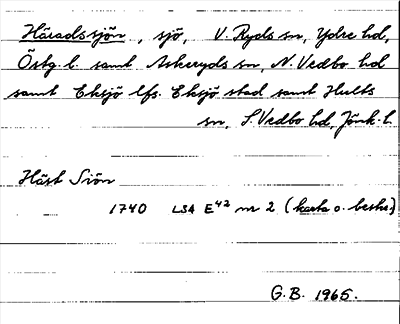 Häradssjön, sjö, V. Ryds sn, Ydre hd,
Östg. l. samt Askeryds sn, N. Vedbo hd
samt Eksjö lfs. Eksjö stad samt Hults
sn, S. Vedbo hd, Jönk. l.
Häst Siön
1740 LSA E42 nr 2 (karta o. beskr.)
G.B. 1965.